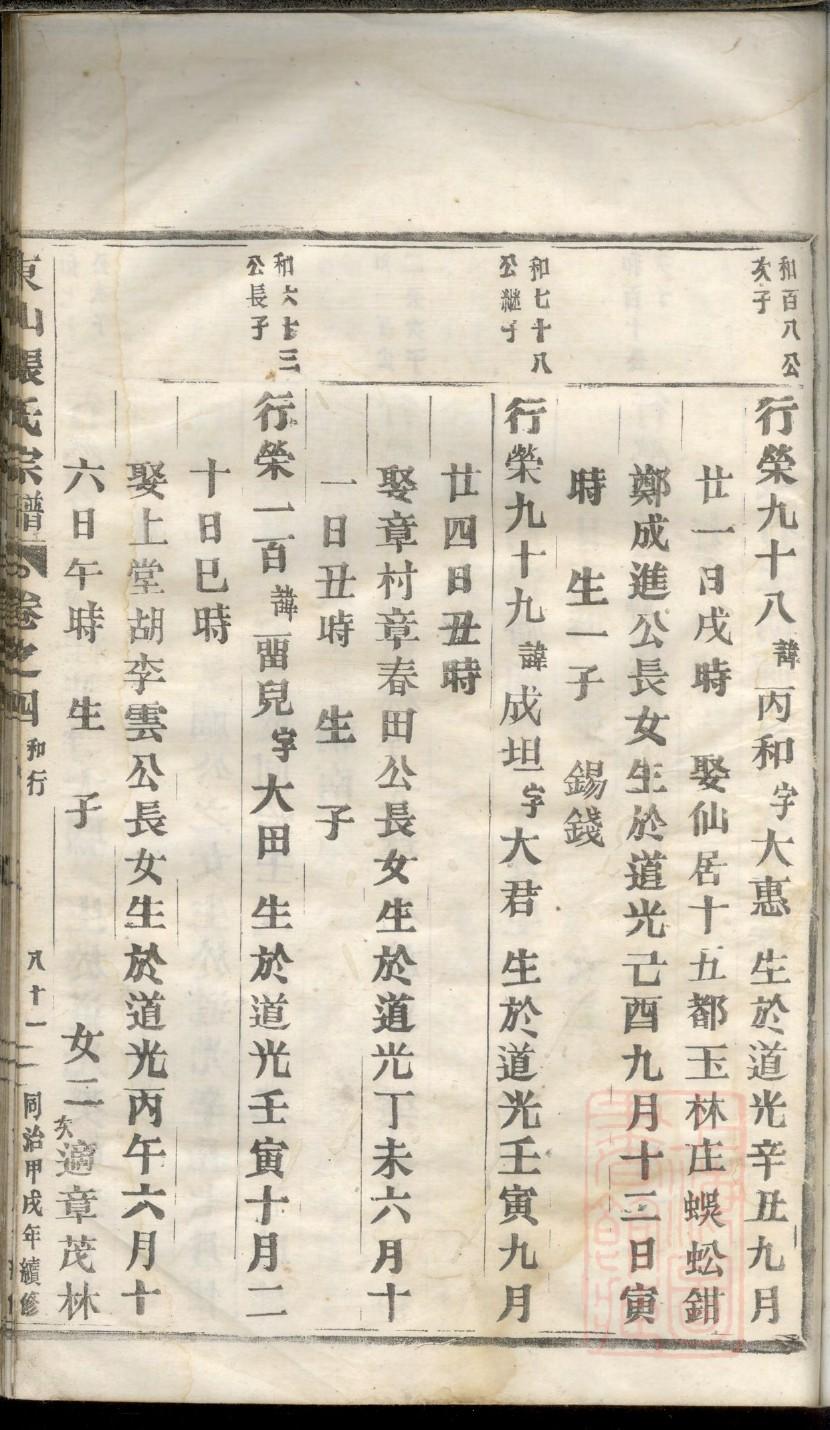 和百八公
次子
行榮九十八諱丙和字大惠 生於道光辛丑九月
廿一日戌時 娶仙居十五都玉林庄蜈蚣鉗
鄭成進公長女生於道光己酉九月十三日寅
時 生一子 錫錢
和七十八
公繼子
行榮九十九諱成坦字大君 生於道光壬寅九月
廿四日丑時
娶章村章春田公長女生於道光丁未六月十
一日丑時 生 子
和六十三
公長子
行榮一百諱畱兒字大田 生於道光壬寅十月二
十日巳時
娶上堂胡李雲公長女生於道光丙午六月十
六日午時 生 子 女二次適章茂林
東山張氏宗譜 卷之四 和行 八十一 同治甲戌年續修